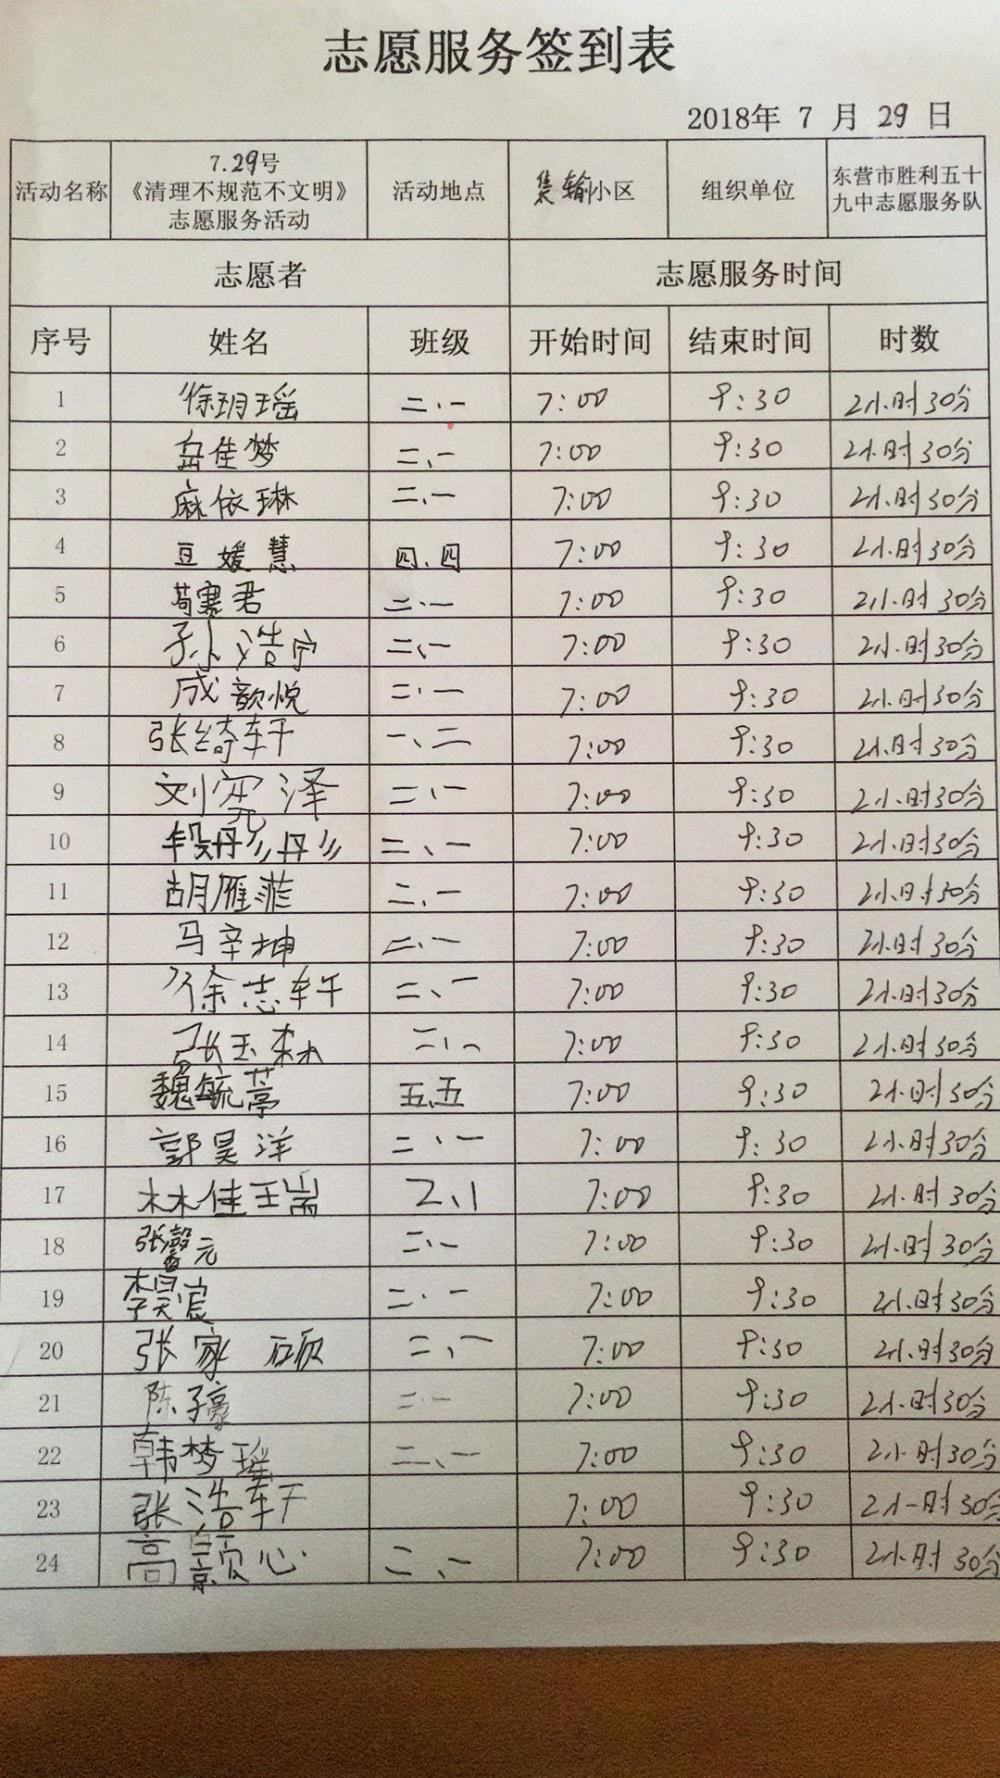 志愿服务签到表
2018年 7 月 29 日
活动名称 7.29号《清理不规范不文明》志愿服务活动 活动地点 集输小区 组织单位 东营市胜利五十九中志愿服务队
志愿者 志愿服务时间
序号 姓名 班级 开始时间 结束时间 时数
1 徐玥瑶 二、一 7:00 9:30 2小时30分
2 岳佳梦 二、一 7:00 9:30 2小时30分
3 麻依琳 二、一 7:00 9:30 2小时30分
4 豆媛慧 四、四 7:00 9:30 2小时30分
5 苟赛君 二、一 7:00 9:30 2小时30分
6 孙浩宇 二、一 7:00 9:30 2小时30分
7 成歆悦 二、一 7:00 9:30 2小时30分
8 张绮轩 一、二 7:00 9:30 2小时30分
9 刘宪泽 二、一 7:00 9:30 2小时30分
10 段彤彤 二、一 7:00 9:30 2小时30分
11 胡雁菲 二、一 7:00 9:30 2小时30分
12 马辛坤 二、一 7:00 9:30 2小时30分
13 徐志轩 二、一 7:00 9:30 2小时30分
14 张玉森 二、一 7:00 9:30 2小时30分
15 魏毓葶 五、五 7:00 9:30 2小时30分
16 郭昊洋 二、一 7:00 9:30 2小时30分
17 林佳瑞 2、1 7:00 9:30 2小时30分
18 张馨元 二、一 7:00 9:30 2小时30分
19 李昊宸 二、一 7:00 9:30 2小时30分
20 张家硕 二、一 7:00 9:30 2小时30分
21 陈子豪 二、一 7:00 9:30 2小时30分
22 韩梦瑶 二、一 7:00 9:30 2小时30分
23 张浩轩 7:00 9:30 2小时30分
24 高颢心 二、一 7:00 9:30 2小时30分